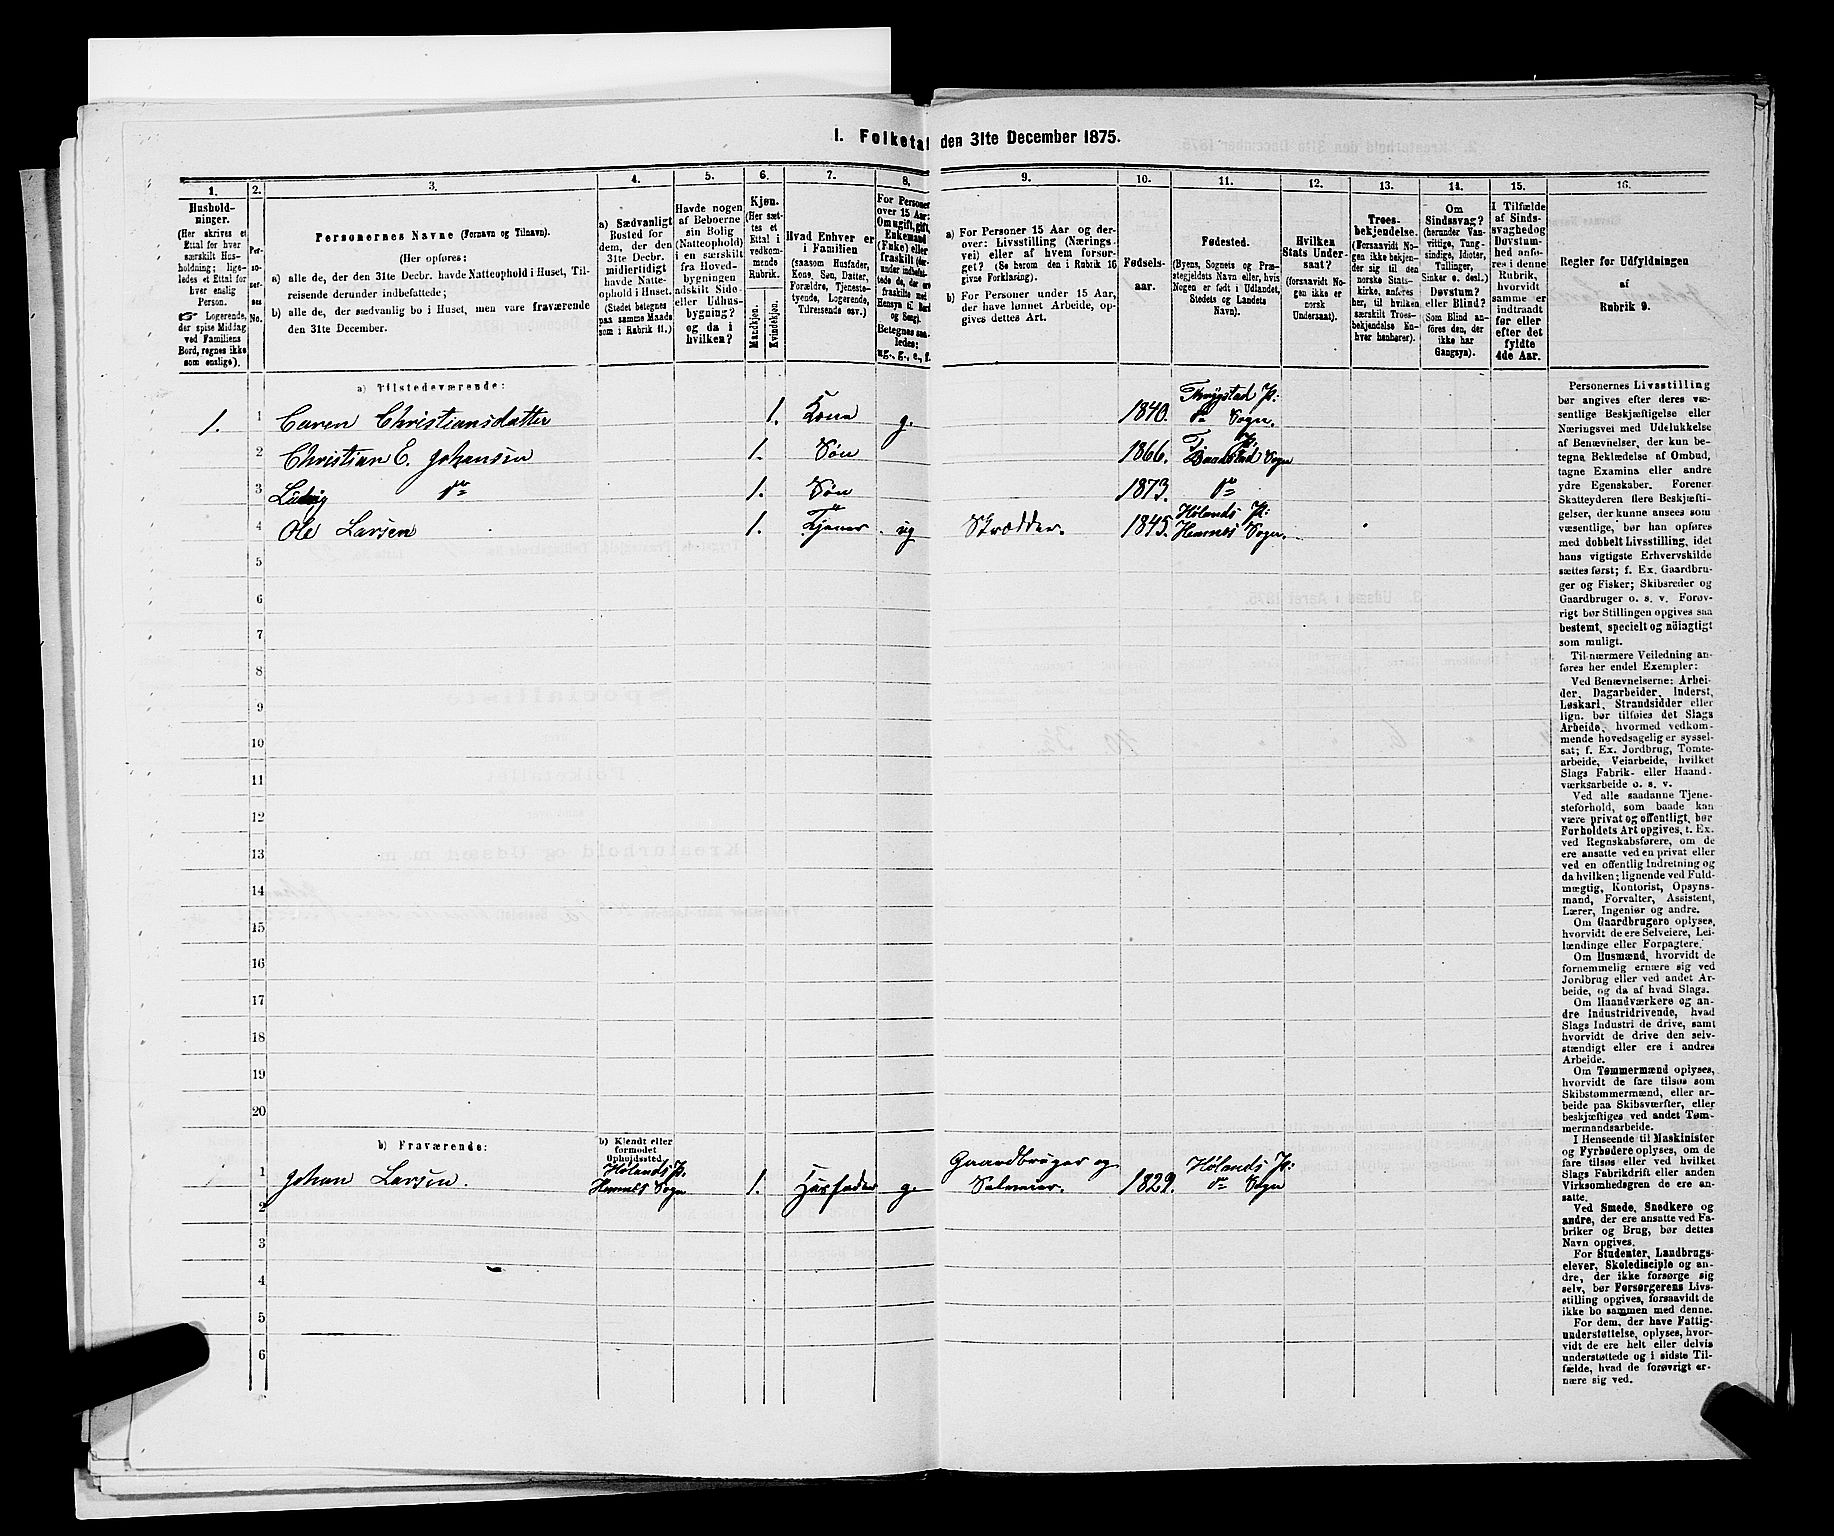 I. Folketal den 31te December 1875.
1. 2. 3. 4. 5. 6. 7. 8. 9. 10. 11. 12. 13. 14. 15. 16.
Hushold-
ninger.
(Her skrives et
Ettal for hver
særskilt Hus-
holdning; lige-
ledes et Ettal for
hver enslig
Person.
☞ Logerende,
der spise Middag
ved Familiens
Bord, regnes ikke
som enslige).
Per-
so-
ner-
nes
No.
Personernes Navne (Fornavn og Tilnavn).
(Her opføres:
a) alle de, der den 31te Decbr. havde Natteophold i Huset, Til-
reisende derunder indbefattede;
b) alle de, der sædvanlig bo i Huset, men vare fraværende
den 31te December.
a) Sædvanligt
Bosted for
dem, der den
31te Decbr.
midlertidigt
havde Natte-
ophold i Huset.
(Stedet betegnes
paa samme Maade
som i Rubrik 11.)
Havde nogen
af Beboerne
sin Bolig
(Natteophold)
i en særskilt
fra Hoved-
bygningen
adskilt Side-
eller Udhus-
bygning?
og da i
hvilken?
Kjøn.
(Her sæt-
tes et
Ettal i
vedkom-
mende
Rubrik.
Mandkjøn.
Kvindekjøn.
Hvad Enhver er
i Familien
(saasom Husfader,
Kone, Søn, Datter,
Forældre, Tjeneste-
tyende, Logerende,
Tilreisende osv.)
For Personer
over 15 Aar:
Om ugift, gift,
Enkemand
(Enke) eller
fraskilt (der-
under indbefat-
tede de, der ere
fraskilte med
Hensyn til Bord
og Seng).
Betegnes saa-
ledes:
ug., g., e., f.
a) For Personer 15 Aar og der-
over: Livsstilling (Nærings-
vei) eller af hvem forsør-
get? (Se herom den i Rubrik 16
givne Forklaring).
b) For Personer under 15 Aar,
der have lønnet Arbeide, op-
gives dettes Art.
Fødsels-
aar.
Fødested.
(Byens, Sognets og Præ-
stegjeldets Navn eller, hvis
Nogen er født i Udlandet,
Stedets og Landets
Navn).
Hvilken
Stats Under-
saat?
(Forsaavidt No-
gen ikke er
norsk
Undersaat).
Troes-
bekjendelse.
(Forsaavidt No-
gen ikke bekjen-
der sig til den
norske Stats-
kirke, anføres
her, til hvilken
særskilt Troes-
bekjendelse En-
hver henhører).
Om
Sindssvag?
(herunder Van-
vittige, Tung-
sindige, Idioter,
Tullinger,
Sinker o. desl.)
Døvstum?
eller Blind?
(Som Blind an-
føres den, der
ikke har
Gangsyn).
I Tilfælde
af Sinds-
svaghed og
Døvstum-
hed anfø-
res i denne
Rubrik,
hvorvidt
samme er
indtraadt
før eller
efter det
fyldte
4de Aar.
Regler for Udfyldningen
af
Rubrik 9.
a) Tilstedeværende:
1. 1 Caren Christiansdatter 1. Kone g. 1840. Thrygstad P: do Sogn.
2 Christian E. Johansen 1. Søn 1866. Baastad Sogn
3 Ludvig do 1. Søn 1873. do
4 Ole Larsen 1. Tjener ug Skrædder. 1845. Hølands P: Hemnes Sogn.
5
6
7
8
9
10
11
12
13
14
15
16
17
18
19
20
b) Fraværende:
b) Kjendt eller
formodet
Opholdssted.
1 Johan Larsen. Hølands P. Hemnes Sogn 1. Husfader g. Gaardbruger og Selveier. 1829. Hølands P: do Sogn
2
3
4
5
6
Personernes Livsstilling
bør angives efter deres væ-
sentlige Beskjæftigelse eller
Næringsvei med Udelukkelse
af Benævnelser, der kun be-
tegne Beklædelse af Ombud,
tagne Examina eller andre
ydre Egenskaber. Forener
Skatteyderen flere Beskjæfti-
gelser, der kunne ansees som
væsentlige, bør han opføres
med dobbelt Livsstilling, idet
hans vigtigste Erhvervskilde
sættes først; f. Ex. Gaardbru-
ger og Fisker; Skibsreder og
Gaardbruger o. s. v. Forøv-
rigt bør Stillingen opgives saa
bestemt, specielt og nöiagtigt
som muligt.
Til nærmere Veiledning an-
føres her endel Exempler:
Ved Benævnelserne: Arbei-
der, Dagarbeider, Inderst,
Løskarl, Strandsidder eller
lign. bør tilføies det Slags
Arbeide, hvormed vedkom-
mende hovedsagelig er syssel-
sat; f. Ex. Jordbrug, Tomte-
arbeide, Veiarbeide, hvilket
Slags Fabrik- eller Haand-
værksarbeide o. s. v.
Ved alle saadanne Tjene-
steforhold, som baade kan
være privat og offentligt, bør
Forholdets Art opgives, t. Ex.
ved Regnskabsførere, om de
ere ansatte ved en privat eller
ved en offentlig Indretning og
da hvilken; lignende ved Fuld-
mægtig, Kontorist, Opsyns-
mand, Forvalter, Assistent,
Lærer, Ingeniør og andre.
Om Gaardbrugere oplyses,
hvorvidt de ere Selveiere, Lei-
lændinge eller Forpagtere.
Om Husmænd, hvorvidt de
fornemmelig ernære sig ved
Jordbrug eller ved andet Ar-
beide, og da af hvad Slags.
Om Haandværkere og an-
dre Industridrivende, hvad
Slags Industri de drive, samt
hvorvidt de drive den selv-
stændigt eller ere i andres
Arbeide.
Om Tømmermænd oplyses,
hvorvidt de fare tilsøs som
Skibstømmermænd, eller ar-
beide paa Skibsværfter, eller
beskjæftiges ved andet Tøm-
mermandsarbeide.
I Henseende til Maskinister
og Fyrbødere oplyses, om de
fare tilsøs eller ved hvilket
Slags Fabrikdrift eller anden
Virksomhedsgren de ere an-
satte.
Ved Smede, Snedkere og
andre, der ere ansatte ved Fa-
briker og Brug, bør dettes
Navn opgives.
For Studenter, Landbrugs-
elever, Skoledisciple og an-
dre, der ikke forsørge sig
selv, bør Forsørgerens Livs-
stilling opgives, forsaavidt de
ikke bo sammen med denne.
For dem, der have Fattig-
understøttelse, oplyses, hvor-
vidt de ere helt eller delvis
understøttede og i sidste Til-
fælde, hvad de forøvrigt er-
nære sig ved.